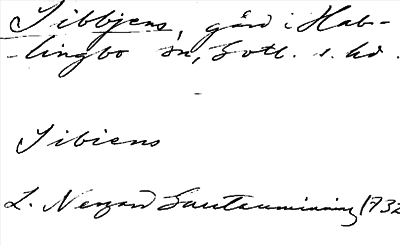 Sibbjens, gård i Hab-
-lingbo sn, Gotl. s. hd.
-
Sibiens
L. Neogard Gautauminning 1732